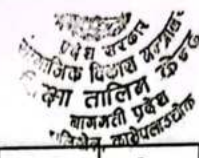 प्रदेश सरकार
सामाजिक विकास मन्त्रालय
तालिम केन्द्र
बागमती प्रदेश
काभ्रेपलाञ्चोक